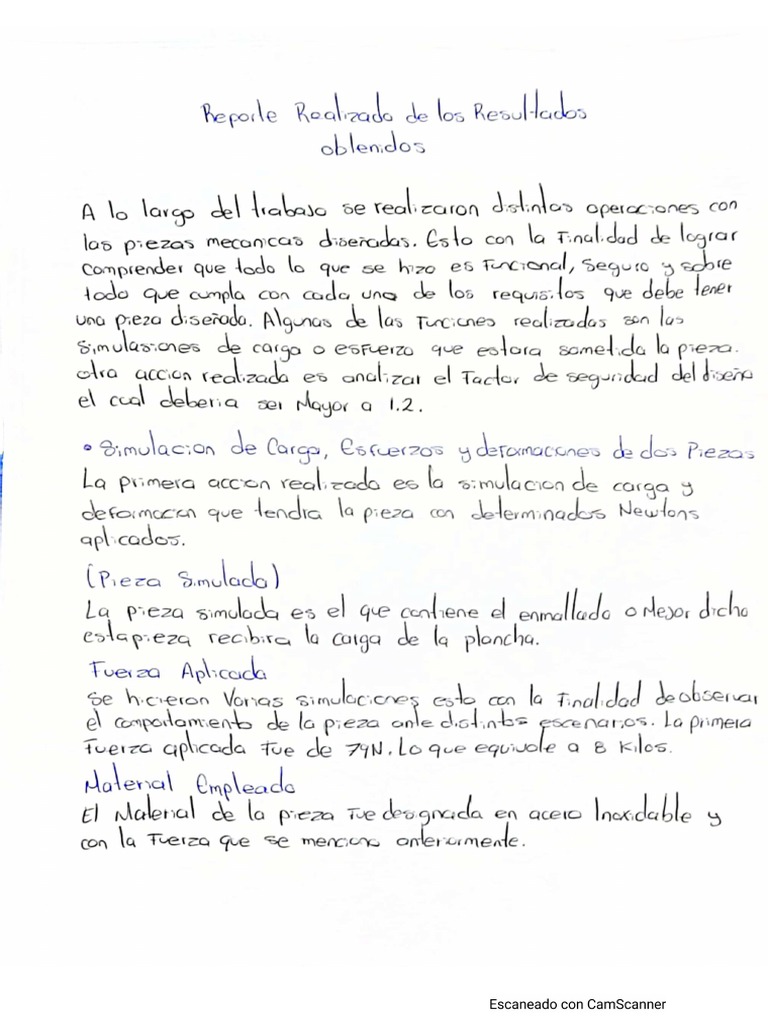 Reporte Realizado de los Resultados
obtenidos
A lo largo del trabajo se realizaron distintas operaciones con
las piezas mecanicas diseñadas. Esto con la Finalidad de lograr
comprender que todo lo que se hizo es Funcional, Seguro y sobre
todo que cumpla con cada uno de los requisitos que debe tener
una pieza diseñada. Algunas de las Funciones realizadas son las
simulasiones de carga o esfuerzo que estara sometida la pieza.
otra accion realizada es analizar el Factor de seguridad del diseño
el cual deberia ser Mayor a 1.2.
• Simulacion de Carga, Esfuerzos y deformaciones de dos Piezas
La primera accion realizada es la simulacion de carga y
deformacion que tendra la pieza con determinados Newtons
aplicados.
(Pieza Simulada)
La pieza simulada es el que contiene el enmallado o Mejor dicho
esta pieza recibira la carga de la plancha.
Fuerza Aplicada
Se hicieron Varias simulaciones esto con la Finalidad de observar
el comportamiento de la pieza ante distintos escenarios. La primera
Fuerza aplicada Fue de 79N. Lo que equivale a 8 Kilos.
Material Empleado
El Material de la pieza Fue designada en acero Inoxidable y
con la Fuerza que se menciono anteriormente.
Escaneado con CamScanner